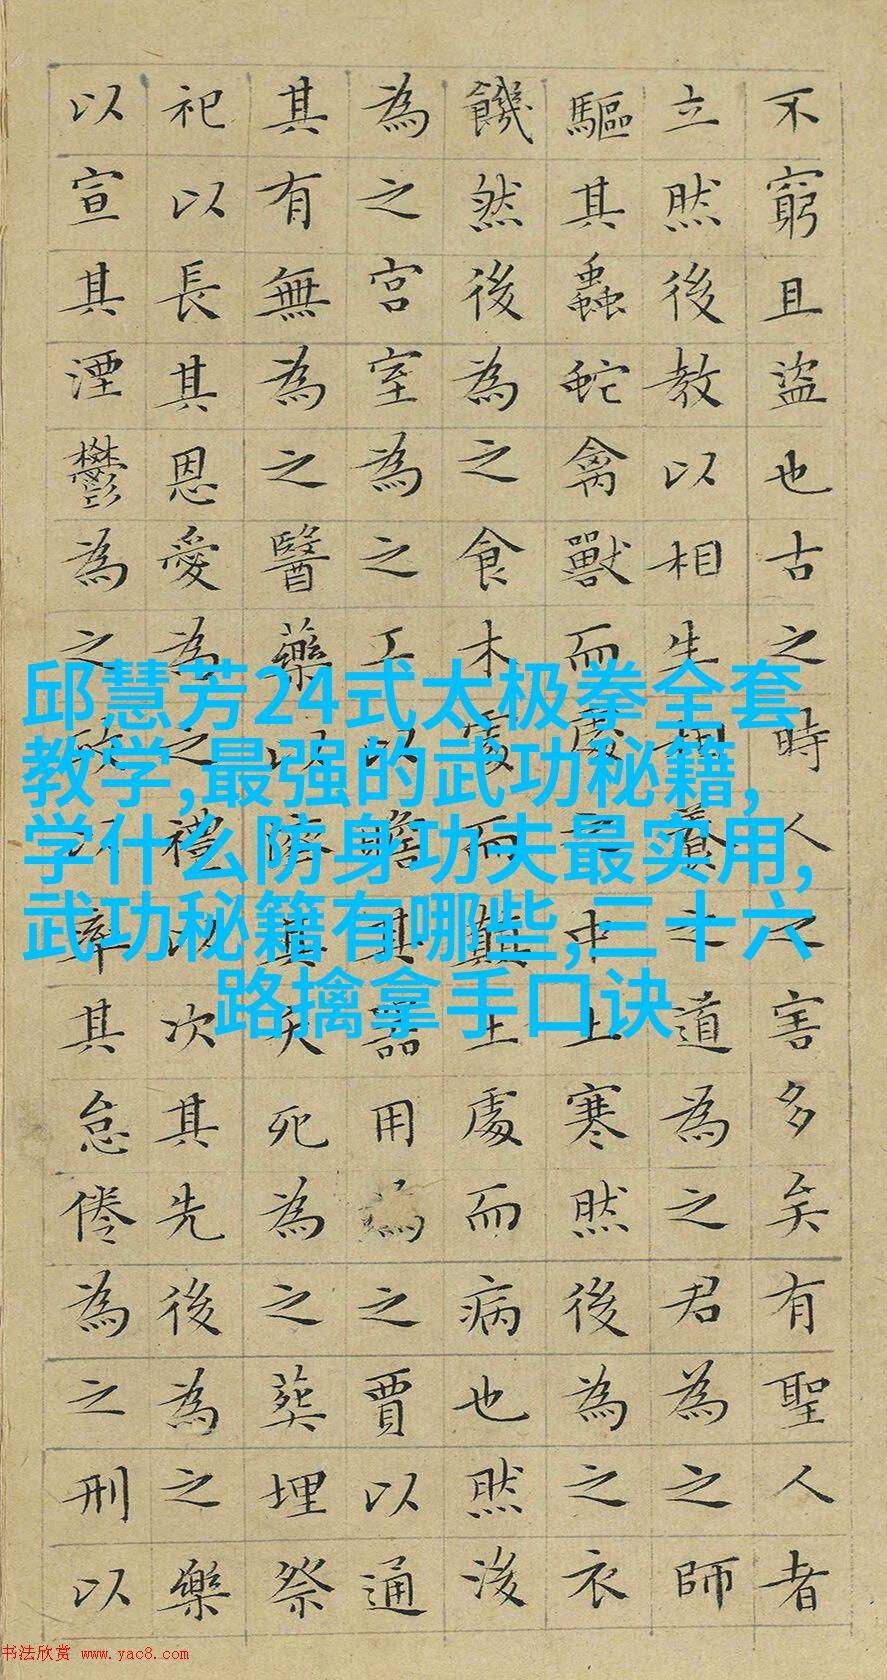 不窮且盜也古之時人之害多矣有聖人者
立然後教以相生相養之道為之君為之師
驅其蟲蛇禽獸而處之中土寒然後為之衣
饑然後為之食木處而顛土處而病也然後
為之宮室為之工以贍其器用為之賈以通
其有無為之醫藥以濟其夭死為之葬埋祭
祀以長其恩愛為之禮以次其先後為之樂
以宣其湮鬱為之政以率其怠倦為之刑以
邱慧芳24式太极拳全套
教学,最强的武功秘籍,
学什么防身功夫最实用,
武功秘籍有哪些,三十六
路擒拿手口诀
书法欣赏 www.yac8.com